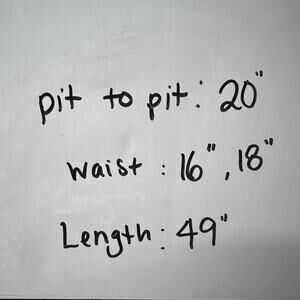 pit to pit: 20"
waist : 16", 18"
Length: 49"